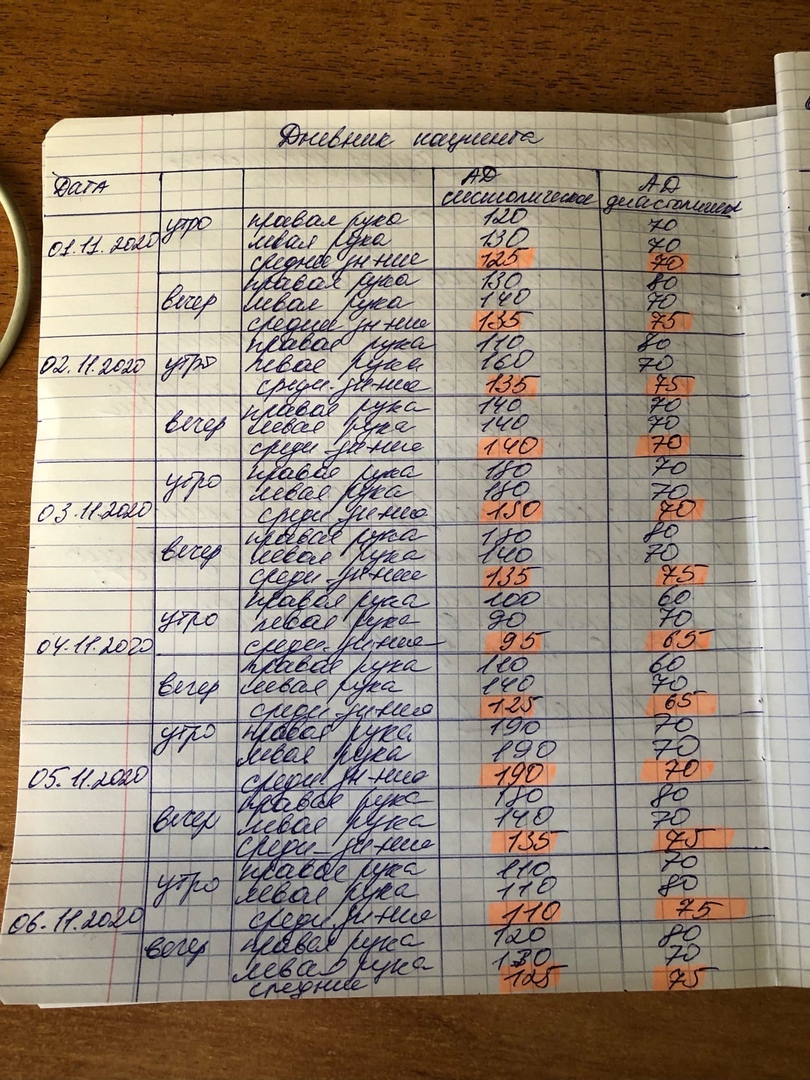 Дневник пациента
Дата АД систолическое АД диастолическ
01.11.2020 утро правая рука 120 70
левая рука 130 70
средние зн-ние 125 70
вечер правая рука 130 80
левая рука 140 70
средни зн-ние 135 75
02.11.2020 утро правая рука 110 80
левая рука 160 70
средн. зн-ние 135 75
вечер правая рука 140 70
левая рука 140 70
средн зн-ние 140 70
03.11.2020 утро правая рука 70
левая рука 70
средн зн-ние 70
вечер правая рука 80
левая рука 140 70
средн зн-ние 135 75
04.11.2020 утро правая рука 100 60
левая рука 90 70
средн зн-ние 95 65
вечер правая рука 110 60
левая рука 140 70
средн зн-ния 125 65
05.11.2020 утро правая рука 190 70
левая рука 190 70
средн зн-ние 190 70
вечер правая рука 80
левая рука 140 70
средн зн-ние 135 75
06.11.2020 утро правая рука 110 70
левая рука 110 80
средн зн-ние 110 75
вечер правая рука 120 80
левая рука 130 70
средние 125 75